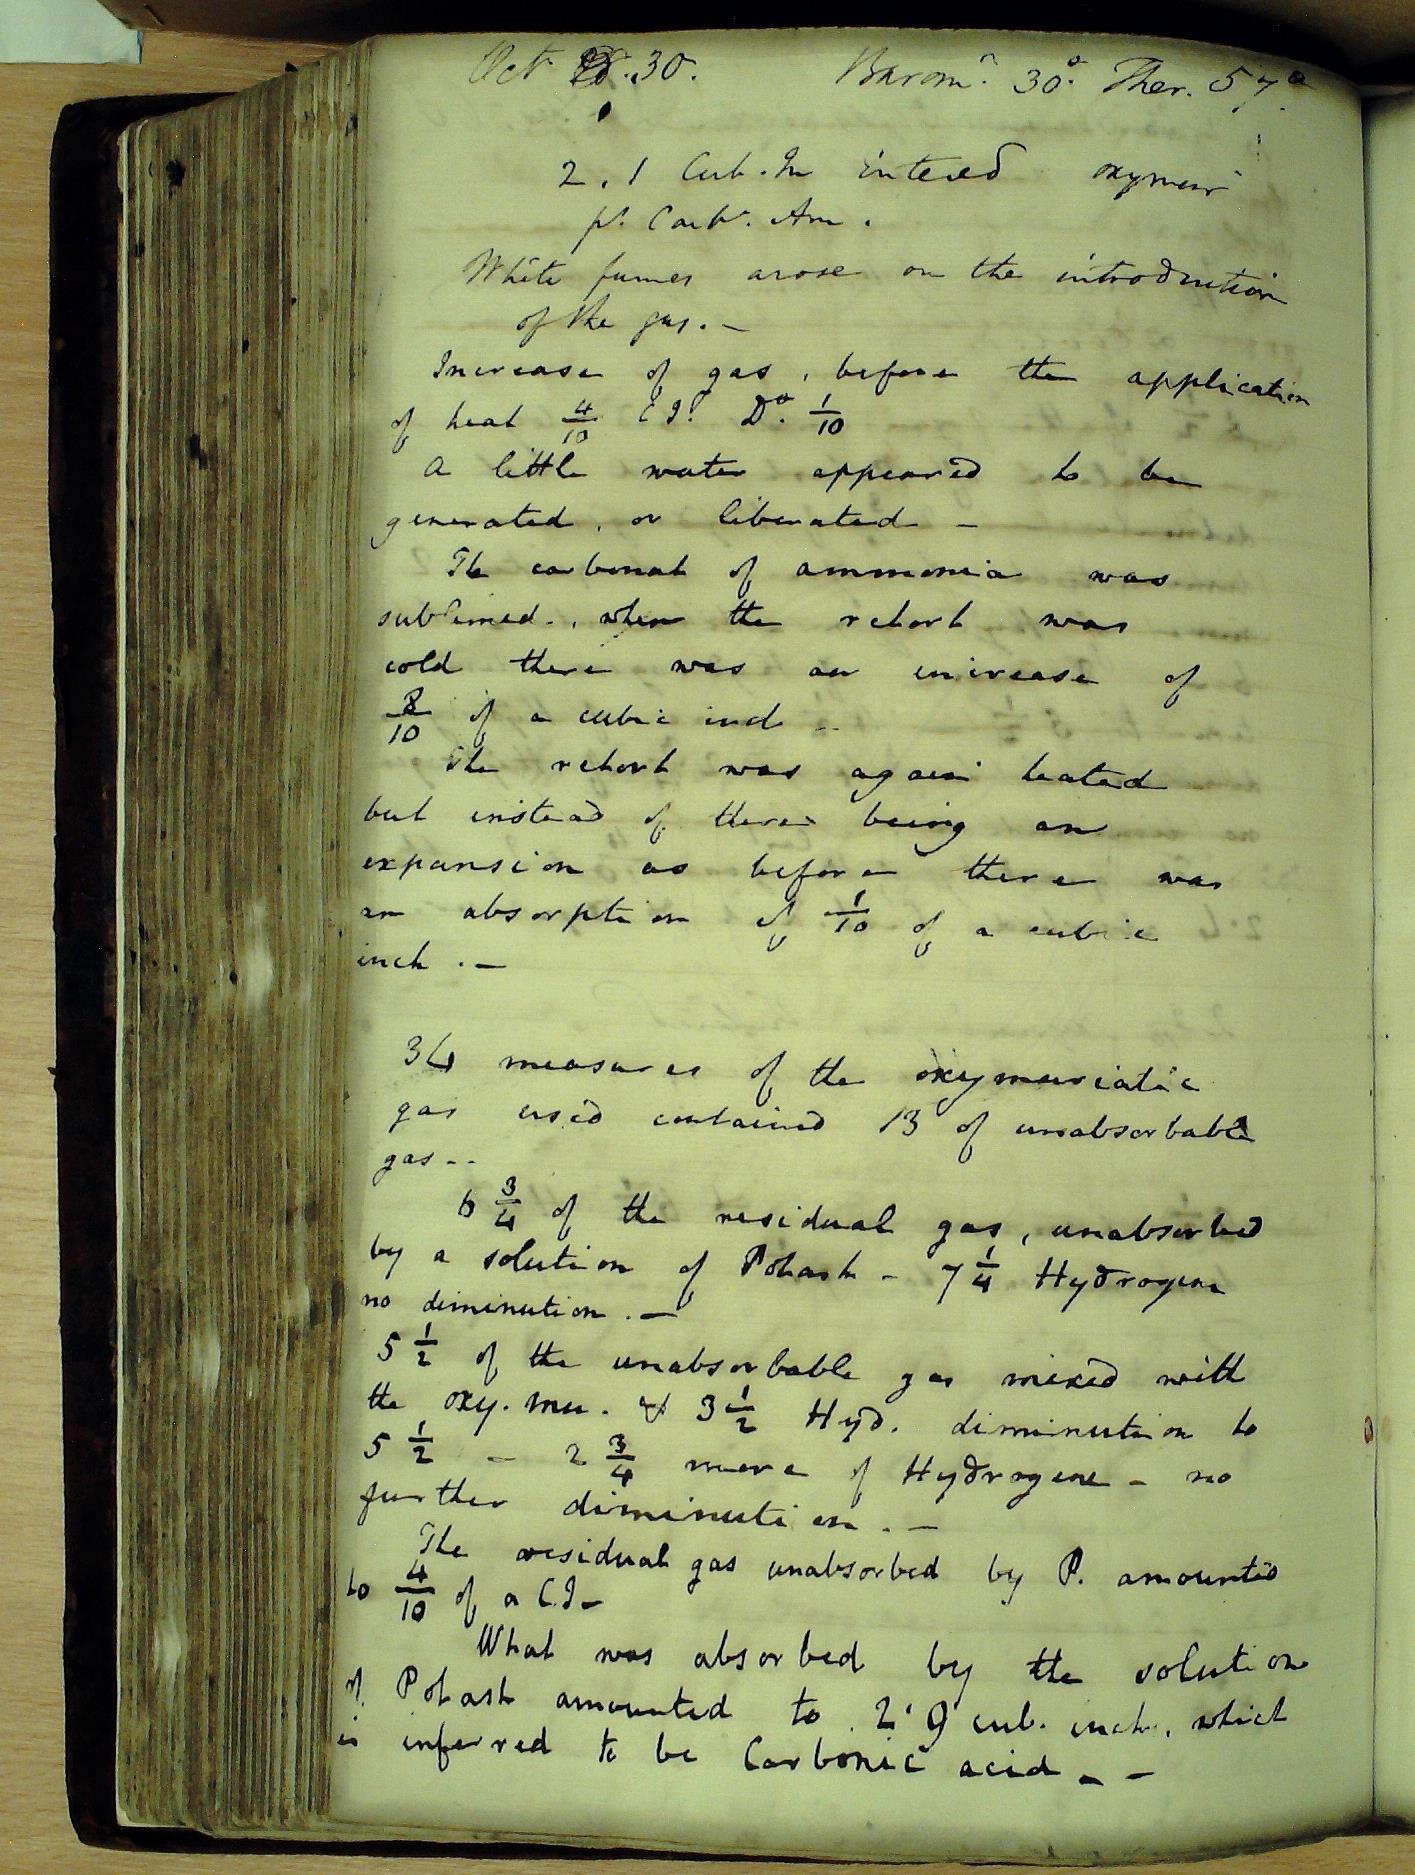 Oct 30. Barom.r 30.° Ther. 57°
2.1 Cub. In entered oxymur
pt. Carb. Am.
White fumes arose on the introduction
of the gas. —
Increase of gas, before the application
of heat 4/10 C I. Do. 1/10
A little water appeared to be
generated, or liberated —
The carbonat of ammonia was
sublimed., when the retort was
cold there was an increase of
8/10 of a cubic inch —
The retort was again heated
but instead of there being an
expansion as before there was
an absorption of 1/10 of a cubic
inch . —
34 measures of the oxymuriatic
gas used contained 13 of unabsorbable
gas - -
6 3/4 of the residual gas, unabsorbed
by a solution of Potash - 7 1/4 Hydrogene
no diminution . —
5 1/2 of the unabsorbable gas mixed with
the oxy. mu. & 3 1/2 Hyd. diminution to
5 1/2 - 2 3/4 more of Hydrogene - no
further diminution . —
The residual gas unabsorbed by P. amounted
to 4/10 of a C.I —
What was absorbed by the solution
of Potash amounted to 2.9 cub. inch, which
is inferred to be Carbonic acid _ —